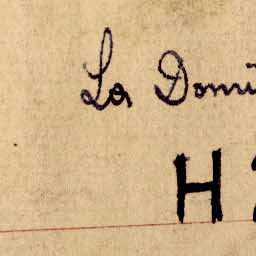 La Domi
H